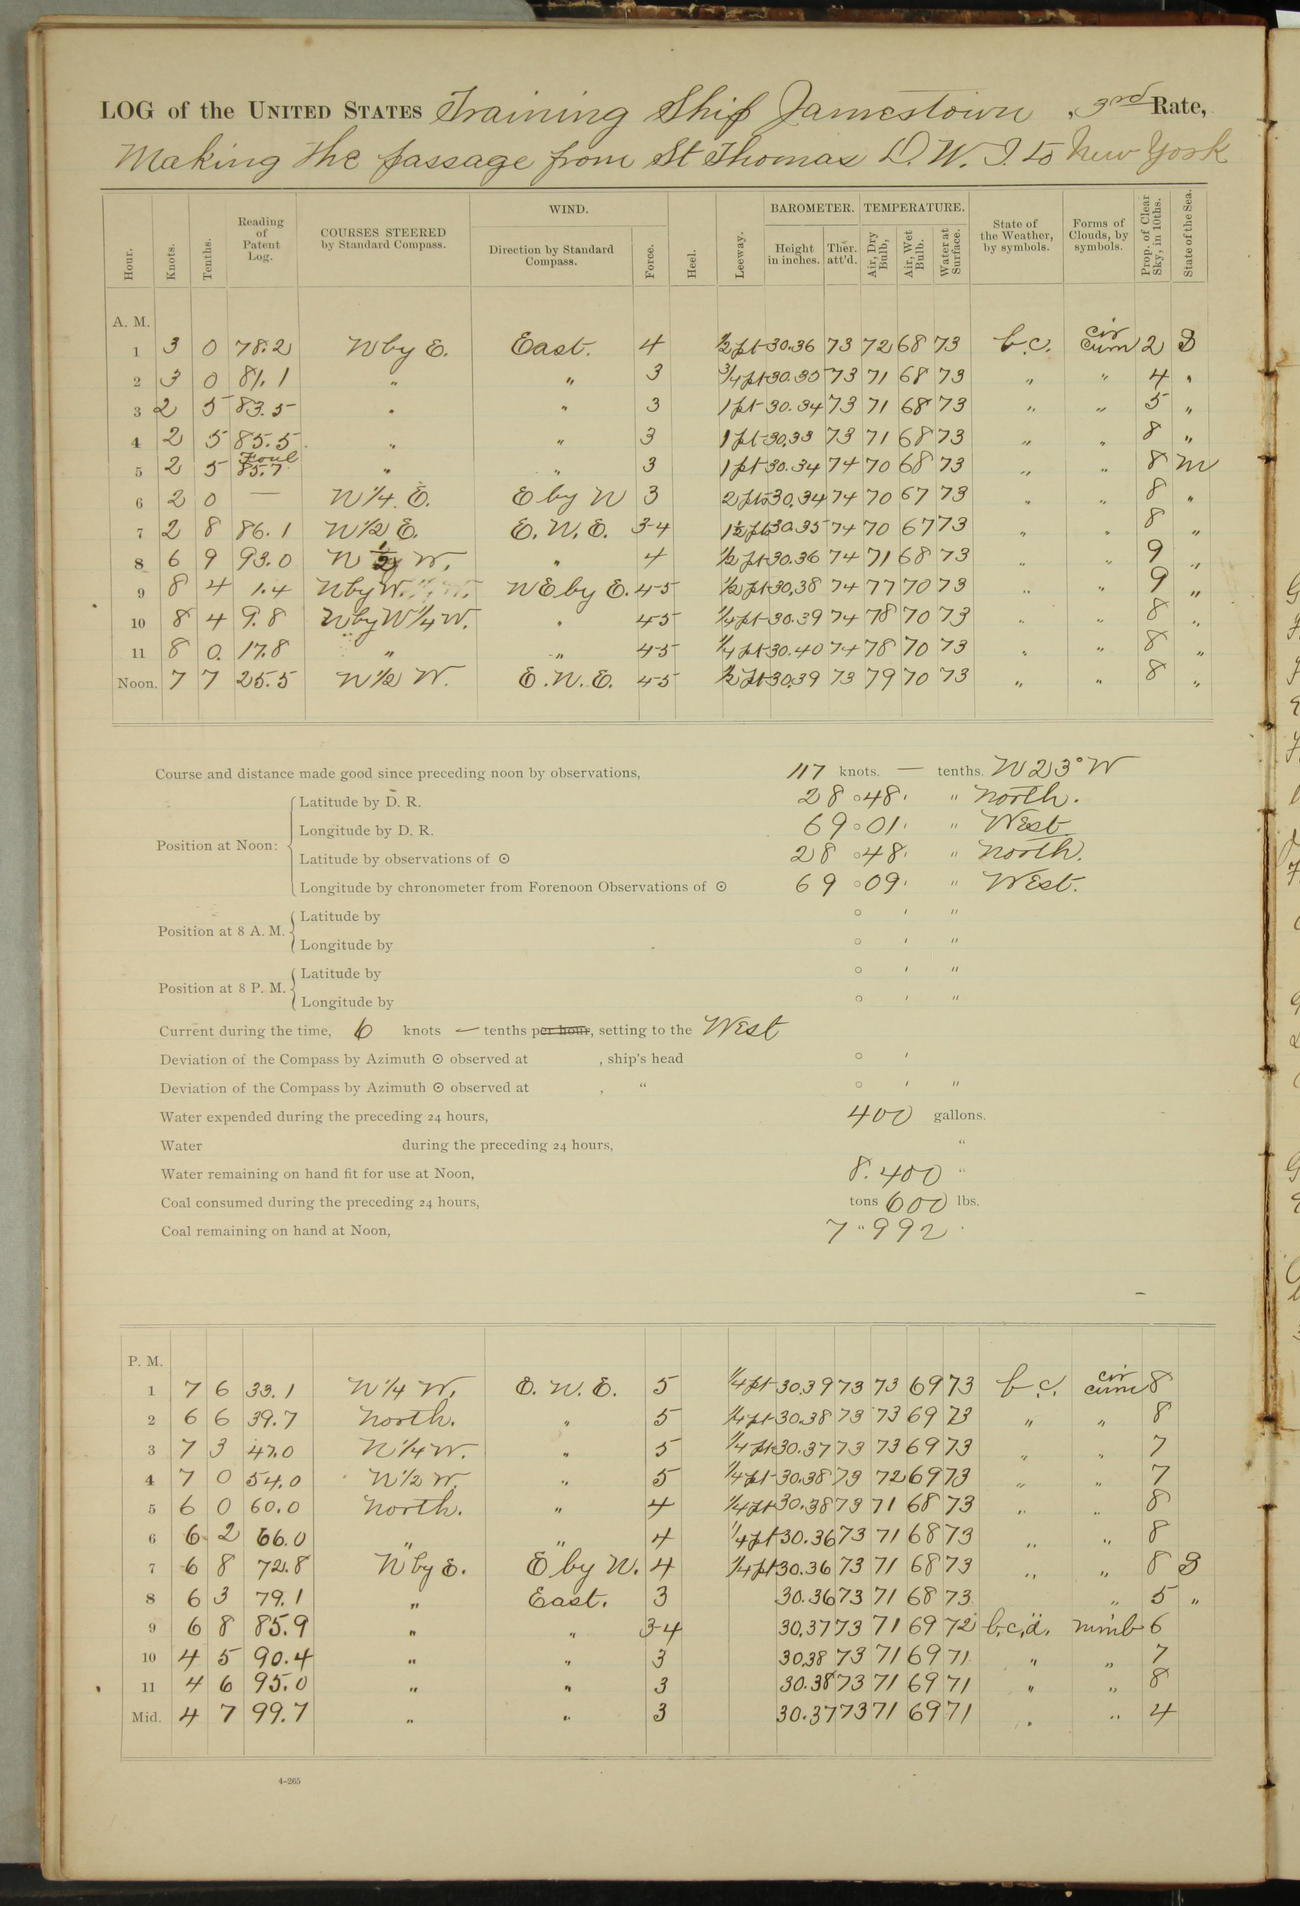 LOG of the UNITED STATES Training Ship Jamestown, 3rd Rate,
Making the passage from St Thomas D. W. I. to New York
Hour. Knots. Tenths. Reading of Patent Log. COURSES STEERED by Standard Compass. WIND. Direction by Standard Compass. Force. Heel. Leeway. BAROMETER. Height in inches. Ther. att'd. TEMPERATURE. Air, Dry Bulb, Air, Wet Bulb. Water at Surface. State of the Weather, by symbols. Forms of Clouds, by symbols. Prop. of Clear Sky, in 10ths. State of the Sea.
A. M.
1 3 0 78.2 N by E. East. 4 1/2 pt 30.36 73 72 68 73 b.c. cir cum 2 S
2 3 0 81.1 " " 3 3/4 pt 30.35 73 71 68 73 " " 4 "
3 2 5 83.5 " " 3 1 pt 30.34 73 71 68 73 " " 5 "
4 2 5 85.5 " " 3 1 pt 30.33 73 71 68 73 " " 8 "
5 2 5 Foul 85.7 " " 3 1 pt 30.34 74 70 68 73 " " 8 M
6 2 0 — N 1/4 E. E by N 3 2 pts 30.34 74 70 67 73 " " 8 "
7 2 8 86.1 N 1/2 E. E. N. E. 3-4 1 1/2 pts 30.35 74 70 67 73 " " 8 "
8 6 9 93.0 N 1/2 W. " 4 1/2 pt 30.36 74 71 68 73 " " 9 "
9 8 4 1.4 N by W. NE by E. 4-5 1/2 pt 30.38 74 77 70 73 " " 9 "
10 8 4 9.8 N by W 1/4 W. " 4-5 1/4 pt 30.39 74 78 70 73 " " 8 "
11 8 0 17.8 " " 4-5 1/4 pt 30.40 74 78 70 73 " " 8 "
Noon. 7 7 25.5 N 1/2 W. E. N. E. 4-5 1/2 pt 30.39 73 79 70 73 " " 8 "
Course and distance made good since preceding noon by observations, 117 knots. — tenths. N 23° W
Position at Noon: Latitude by D. R. 28 ° 48 ' " North.
Longitude by D. R. 69 ° 01 ' " West
Latitude by observations of ☉ 28 ° 48 ' " North.
Longitude by chronometer from Forenoon Observations of ☉ 69 ° 09 ' " West.
Position at 8 A. M. Latitude by ° ' "
Longitude by ° ' "
Position at 8 P. M. Latitude by ° ' "
Longitude by ° ' "
Current during the time, 6 knots — tenths per hour, setting to the West
Deviation of the Compass by Azimuth ☉ observed at , ship's head ° '
Deviation of the Compass by Azimuth ☉ observed at , " ° ' "
Water expended during the preceding 24 hours, 400 gallons.
Water during the preceding 24 hours, "
Water remaining on hand fit for use at Noon, 8.400 "
Coal consumed during the preceding 24 hours, tons 600 lbs.
Coal remaining on hand at Noon, 7 " 992 "
P. M.
1 7 6 33.1 N 1/4 W. E. N. E. 5 1/4 pt 30.39 73 73 69 73 b.c. cir cum 8
2 6 6 39.7 North. " 5 1/4 pt 30.38 73 73 69 73 " " 8
3 7 3 47.0 N 1/4 W. " 5 1/4 pt 30.37 73 73 69 73 " " 7
4 7 0 54.0 N 1/2 W. " 5 1/4 pt 30.38 73 72 69 73 " " 7
5 6 0 60.0 North. " 4 1/4 pt 30.38 73 71 68 73 " " 8
6 6 2 66.0 " " 4 1/4 pt 30.36 73 71 68 73 " " 8
7 6 8 72.8 N by E. E by N. 4 1/4 pt 30.36 73 71 68 73 " " 8 S
8 6 3 79.1 " East. 3 30.36 73 71 68 73 " 5 "
9 6 8 85.9 " " 3-4 30.37 73 71 69 72 b.c.d. nimb 6
10 4 5 90.4 " " 3 30.38 73 71 69 71 " " 7
11 4 6 95.0 " " 3 30.38 73 71 69 71 " " 8
Mid. 4 7 99.7 " " 3 30.37 73 71 69 71 " " 4
4-265